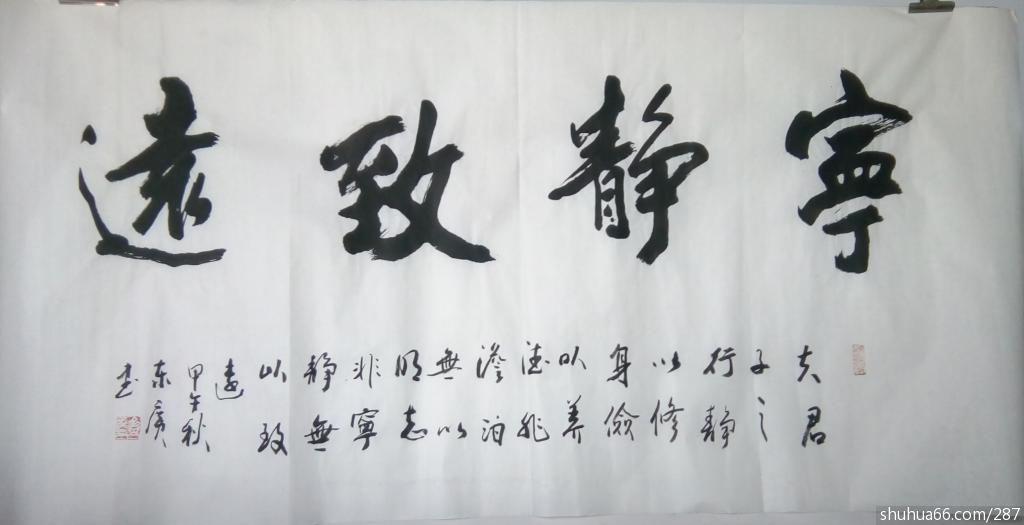 寧靜致遠
夫君
子之
行靜
以修
身儉
以养
德非
澹泊
無以
明志
非寧
靜無
以致
遠
甲午秋
东廣
书
shuhua66.com/287